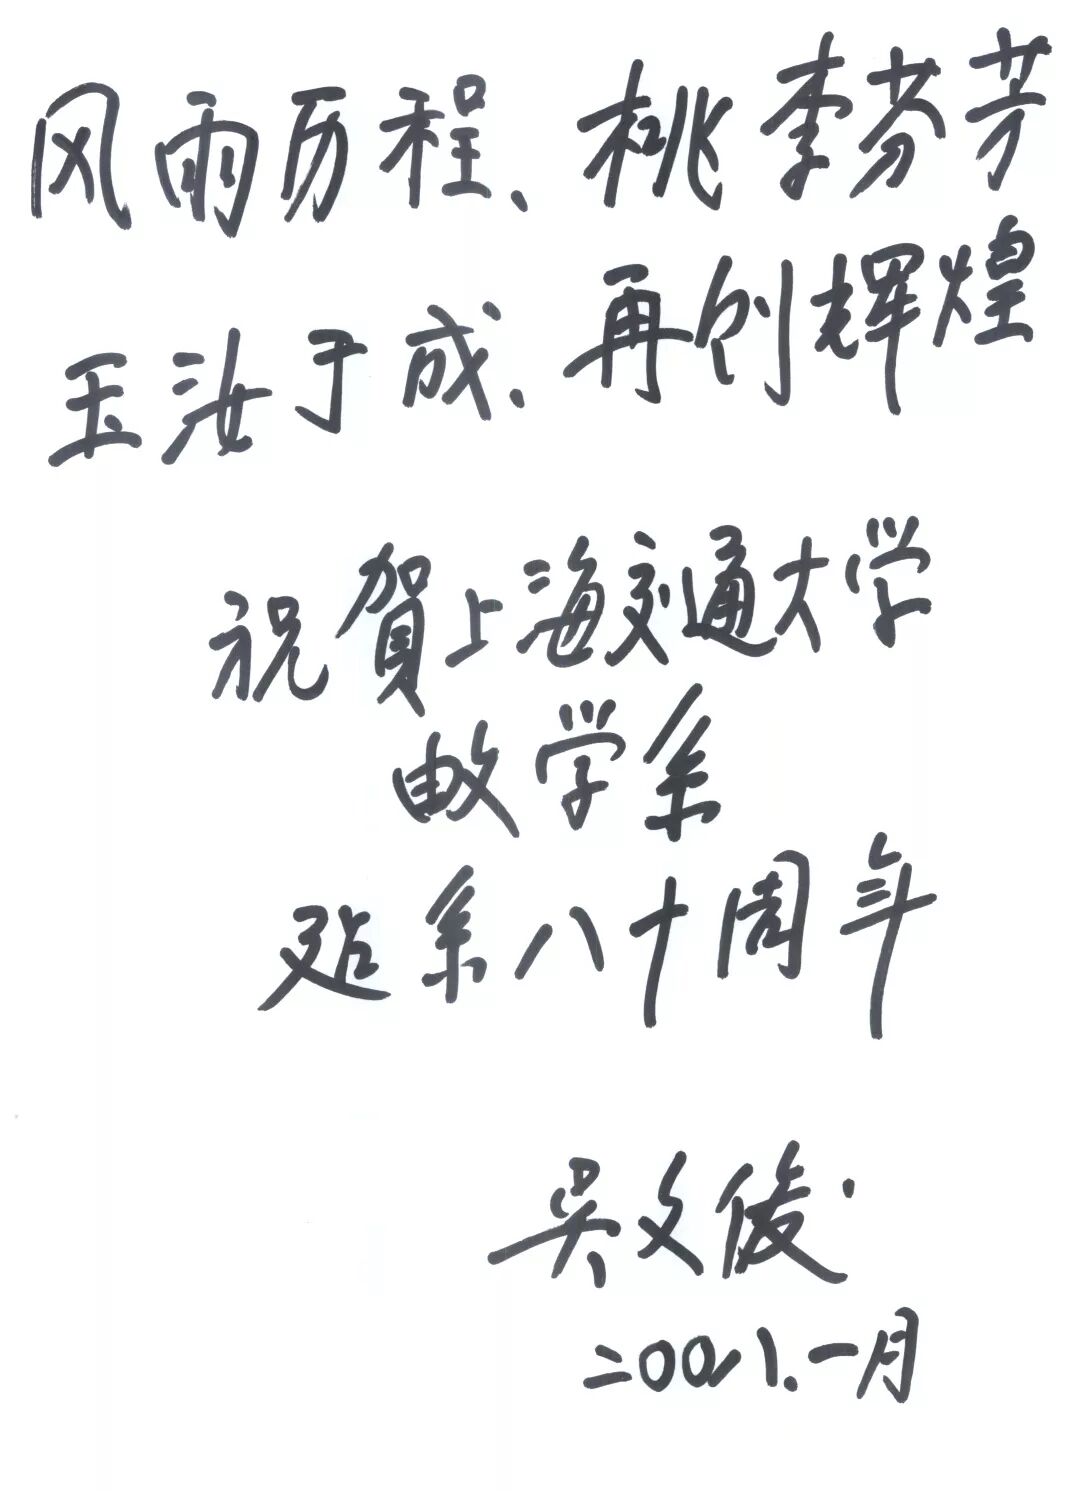 风雨历程、桃李芬芳
玉汝于成、再创辉煌
祝賀上海交通大学
数学系
建系八十周年
吴文俊·
二00八.一月